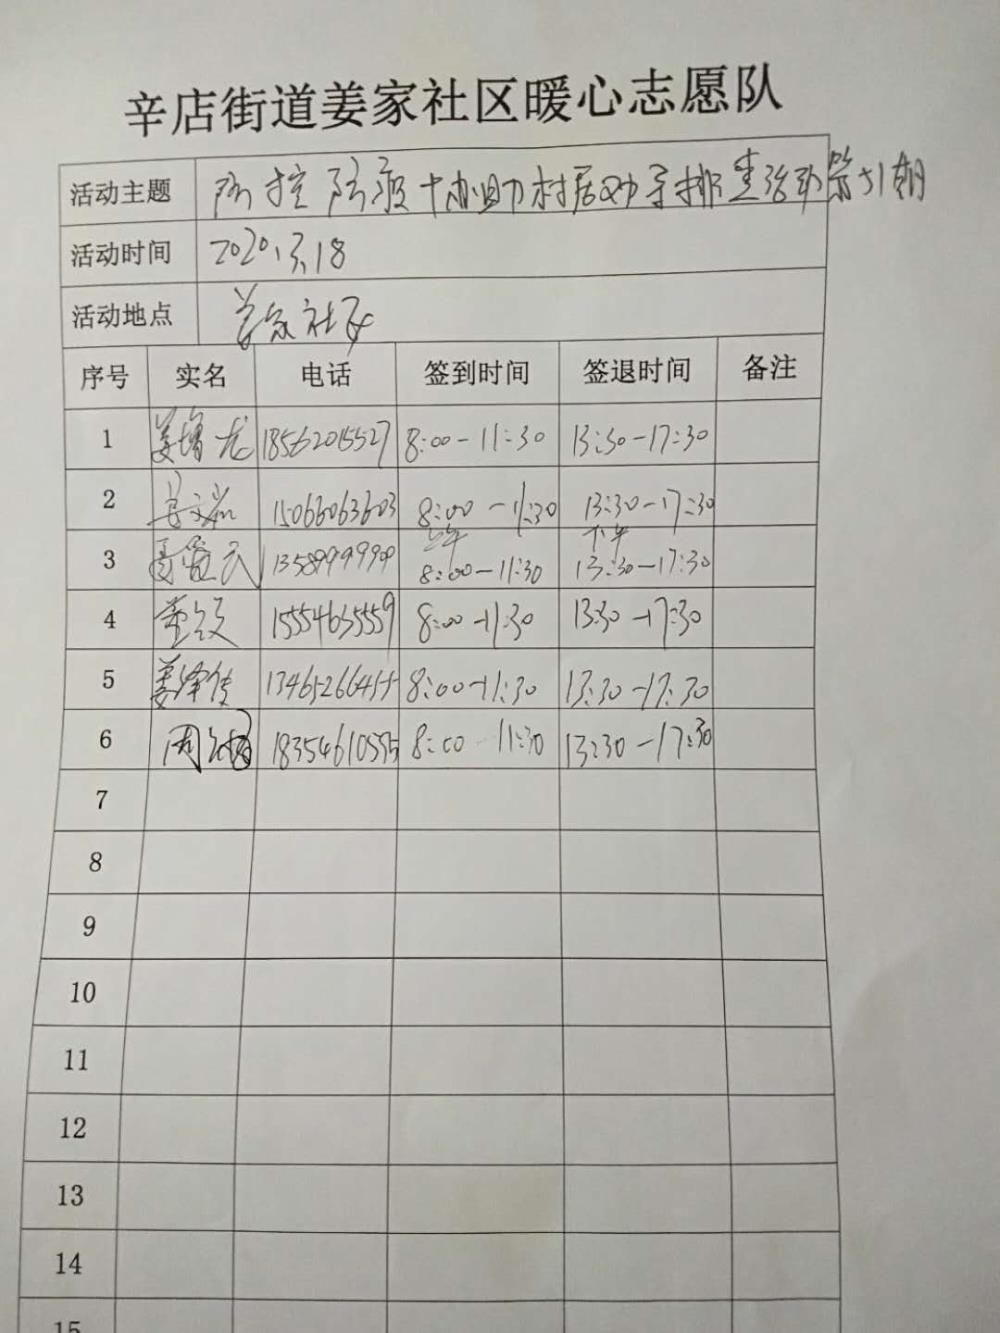 辛店街道姜家社区暖心志愿队
活动主题 防控防疫协助村居劝导排查活动第31期
活动时间 2020.3.18
活动地点 姜家社区
序号 实名 电话 签到时间 签退时间 备注
1 姜增龙 18562015527 8:00-11:30 13:30-17:30
2 15066063603 8:00-11:30 13:30-17:30
上午 下午
3 13589999909 8:00-11:30 13:30-17:30
4 15554635559 8:00-11:30 13:30-17:30
5 姜泽传 8:00-11:30 13:30-17:30
6 18354610595 8:00-11:30 13:30-17:30
7
8
9
10
11
12
13
14
15